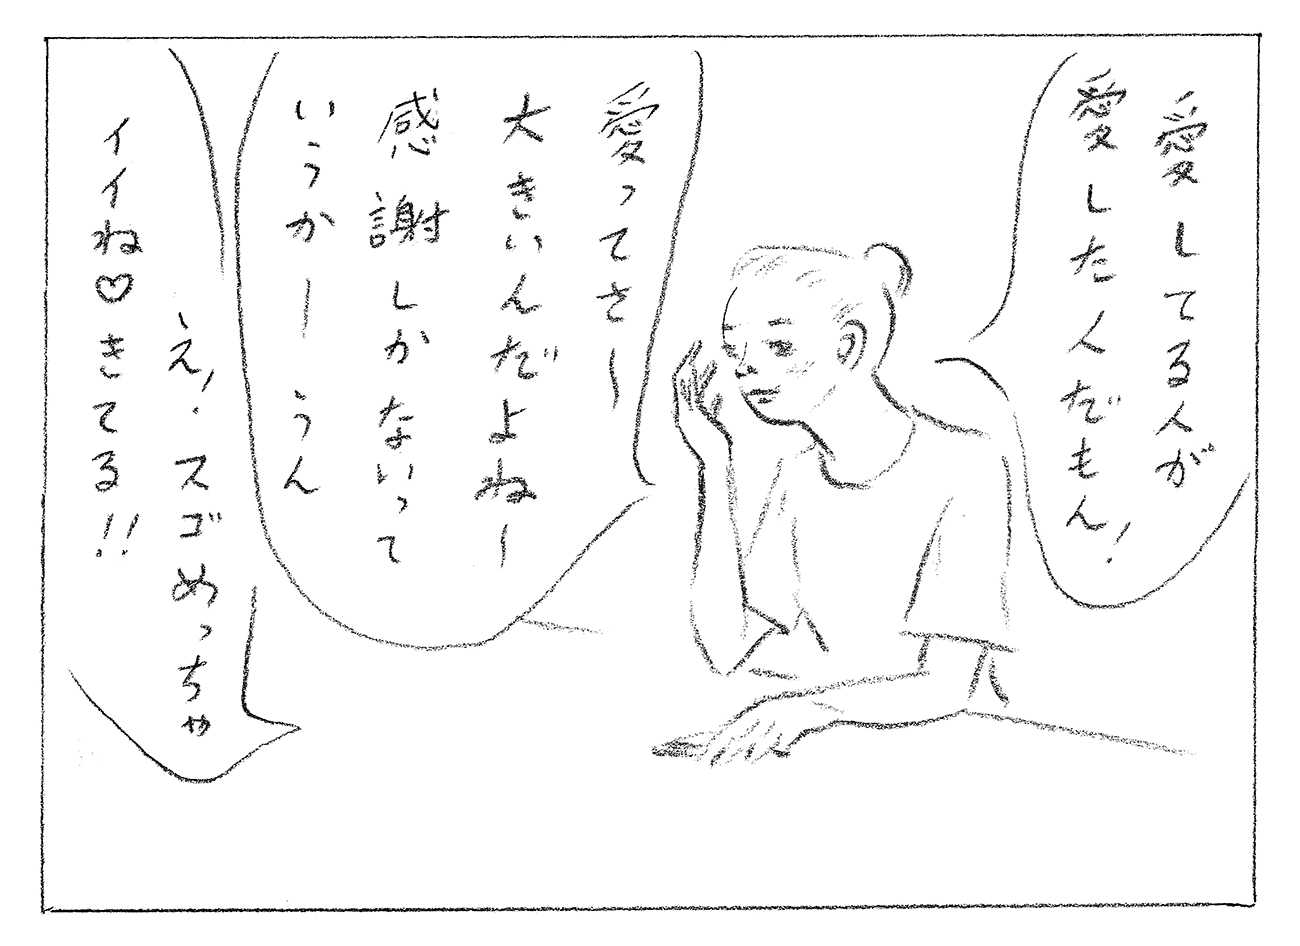 愛してる人が
愛した人だもん!
愛ってさー
大きいんだよねー
感謝しかないって
いうかー うん
え、スゴめっちゃ
イイね♡きてる!!